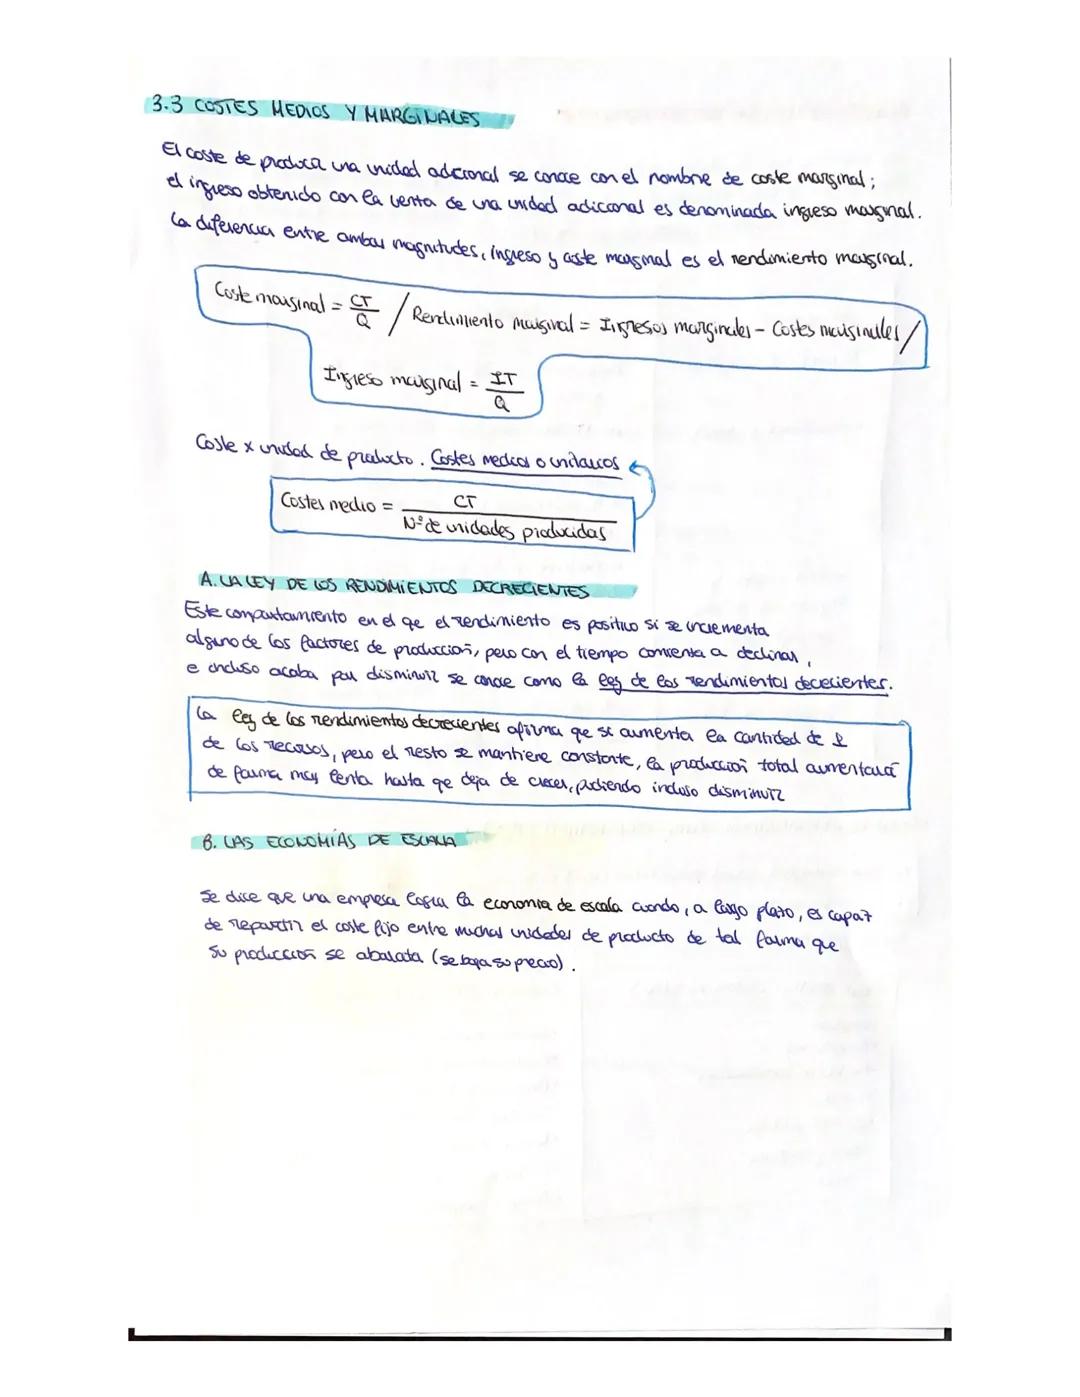 3.3 COSTES MEDIOS Y MARGINALES
El coste de producir una unidad adicional se conoce con el nombre de coste marginal;
el ingreso obtenido con la venta de una unidad adiccional es denominada ingreso marginal.
La diferencia entre ambas magnitudes, ingreso y coste marginal es el rendimiento marginal.
Coste marginal = CT / Q / Rendimiento marginal = Ingresos marginales - Costes marginales /
Ingreso marginal = IT / Q
Coste x unidad de producto. Costes medios o unitarios
Costes medio = CT / Nº de unidades producidas
A. LA LEY DE LOS RENDIMIENTOS DECRECIENTES
Este comportamiento en el qe el rendimiento es positivo si se incrementa
alguno de los factores de producción, pero con el tiempo comienza a declinar,
e incluso acaba por disminuir se conoce como la ley de los rendimientos dececientes.
La ley de los rendimientos decrecientes afirma qe si aumenta la cantidad de 1
de los recursos, pero el resto se mantiene constante, la producción total aumentará
de forma muy lenta hasta qe deja de crecer, pudiendo incluso disminuir
B. LAS ECONOMÍAS DE ESCALA
Se dice que una empresa logra la economía de escala cuando, a largo plazo, es capaz
de repartir el coste fijo entre muchas unidades de producto de tal forma que
su producción se abarata (se baja su precio).